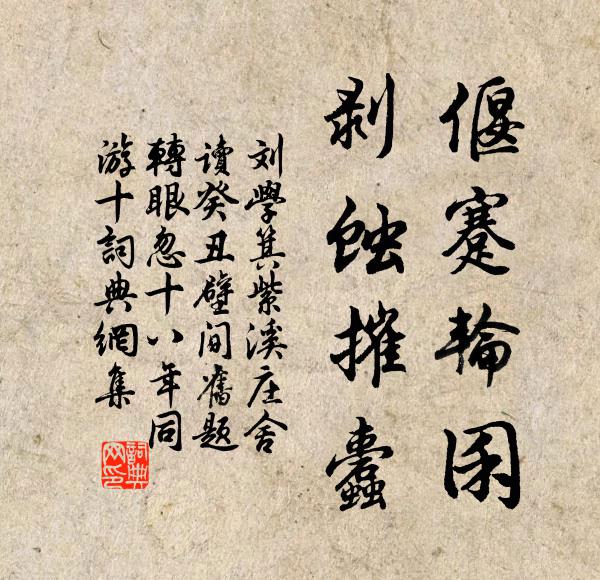 偃蹇輪囷
剥蝕摧蠹
刘學箕紫溪庄舍
讀癸丑壁间舊題
轉眼忽十八年同
游十詞典網集
詞典网印